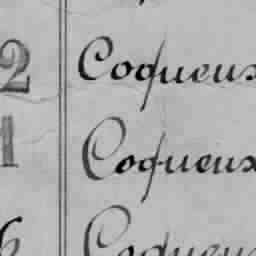 2 Coqueux
1 Coqueux
6 Coqueux